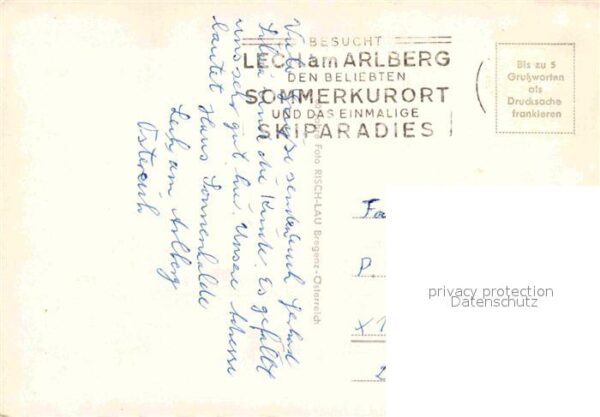 BESUCHT
LECH am ARLBERG
DEN BELIEBTEN
SOMMERKURORT
UND DAS EINMALIGE
SKIPARADIES
Bis zu 5
Grußworten
als
Drucksache
frankieren
Viele Grüsse senden Euch Gerhard
und die Kinder. Es gefällt
uns sehr gut hier. Unsere Adresse
lautet Haus Sonnenhalde
Lech am Arlberg
Österreich
Foto RISCH-LAU Bregenz-Österreich
P.
privacy protection
Datenschutz